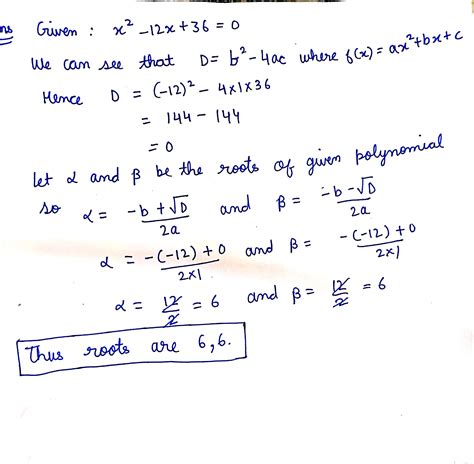 ns Given : x² -12x+36 = 0
We can see that D= b²-4ac where f(x)= ax²+bx+c
Hence D = (-12)² - 4×1×36
= 144 - 144
= 0
let α and β be the roots of given polynomial
so α = (-b+√D)/2a and β = (-b-√D)/2a
α = (-(-12)+0)/2×1 and β = (-(-12)+0)/2×1
α = 12/2 = 6 and β = 12/2 = 6
Thus roots are 6,6.